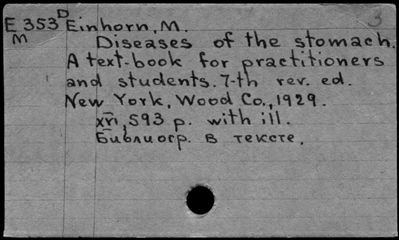 3
E 353 D Einhorn, M.
M Diseases of the stomach.
A text-book for practitioners
and students. 7-th rev. ed.
New York, Wood Co., 1929.
XVI, 593 p. with ill.
Библиогр. в тексте.